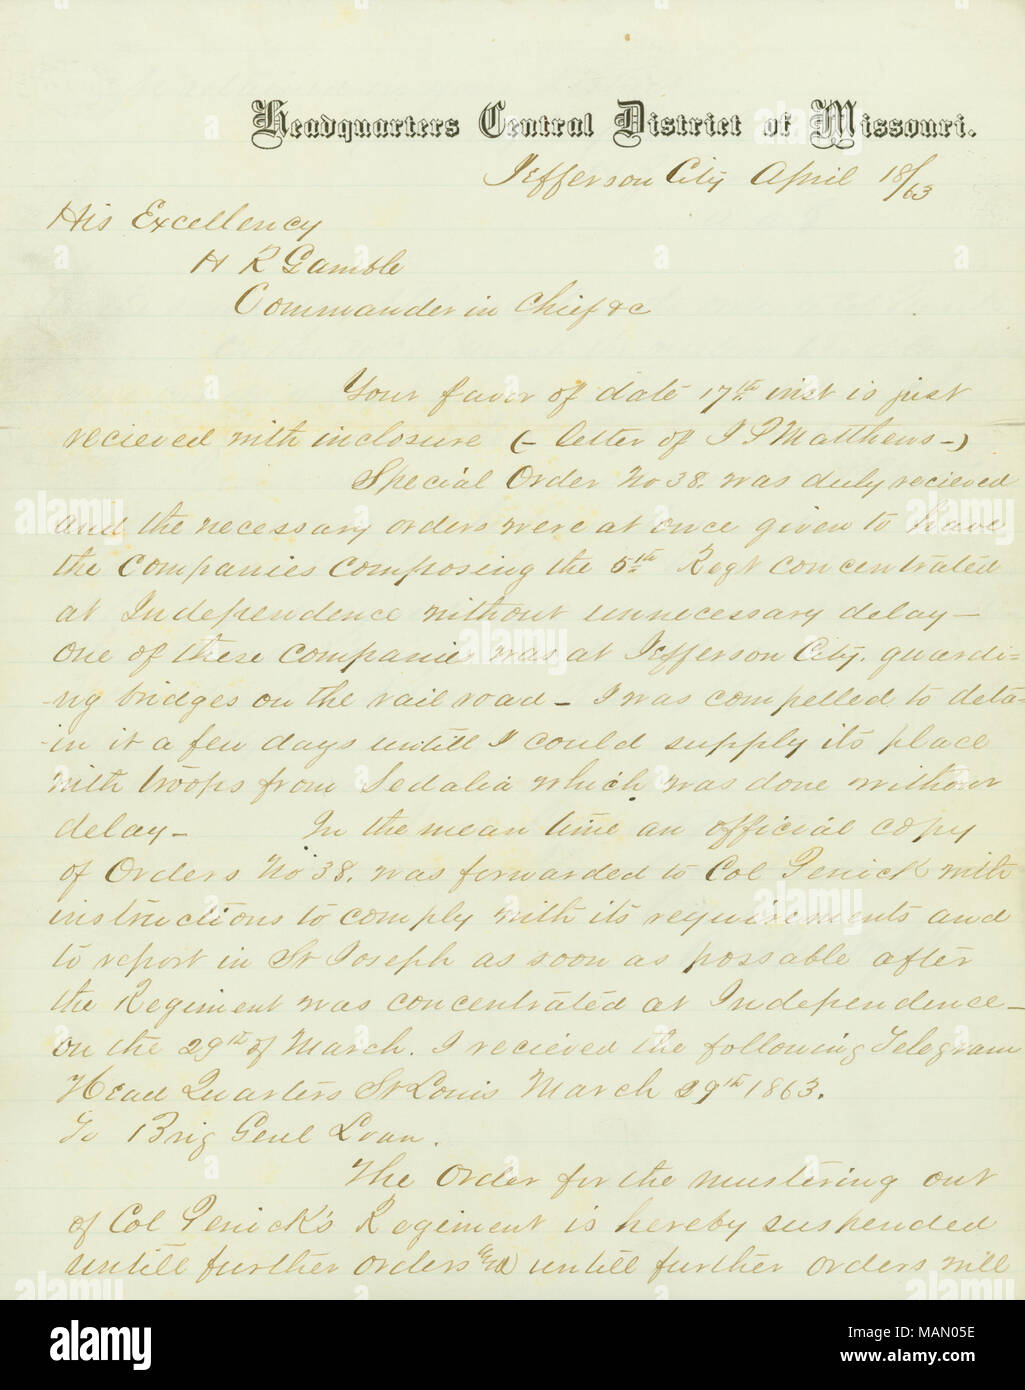 Headquarters Central District of Missouri.
Jefferson City April 18/63
His Excellency
H R Gamble
Commander in Chief &c
Your favor of date 17th inst is just
recieved with inclosure (- letter of J P Matthews -)
Special Order No 38. was duly recieved
and the necessary orders were at once given to have
the Companies composing the 5th Regt concentrated
at Independence without unnecessary delay -
One of these Companies was at Jefferson City. guardi-
-ng bridges on the rail road - I was compelled to deta-
-in it a few days untill I could supply its place
with troops from Sedalia which was done without
delay - In the mean time an official copy
of Orders No 38. was forwarded to Col Penick with
instructions to comply with its requirements and
to report in St Joseph as soon as possable after
the Regiment was concentrated at Independence -
on the 29th of March. I recieved the following Telegram
Head Quarters St Louis March 29th 1863.
To Brig Genl Loan.
The Order for the mustering out
of Col Penick's Regiment is hereby suspended
untill further orders untill further orders will
alamy
Image ID: MAN05E
www.alamy.com